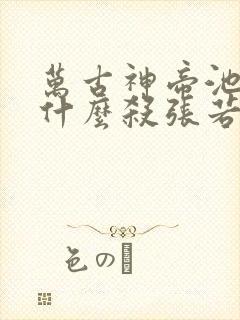 萬古神帝池
什麼殺張若
色の